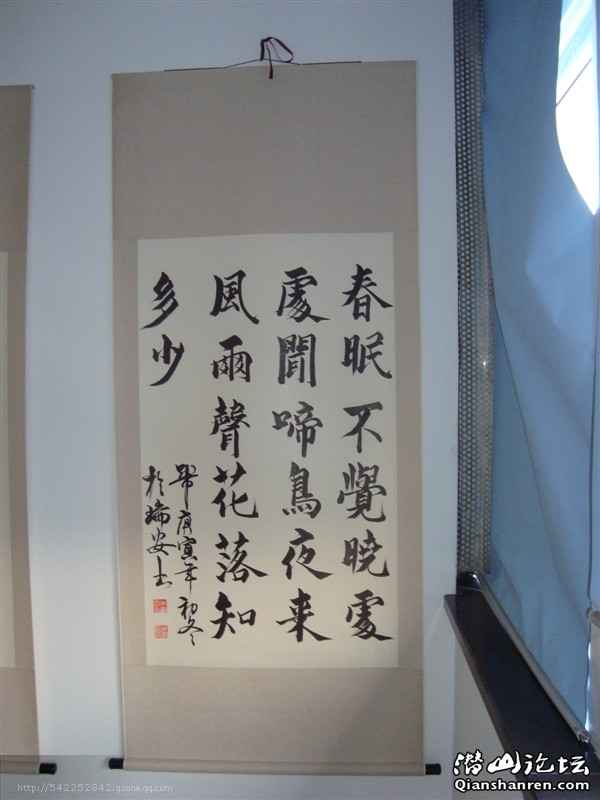 春眠不覺曉處
處聞啼鳥夜来
風雨聲花落知
多少
庚寅年初冬
於瑞安書
http://542252842.qzone.qq.com
潜山论坛
Qianshanren.com